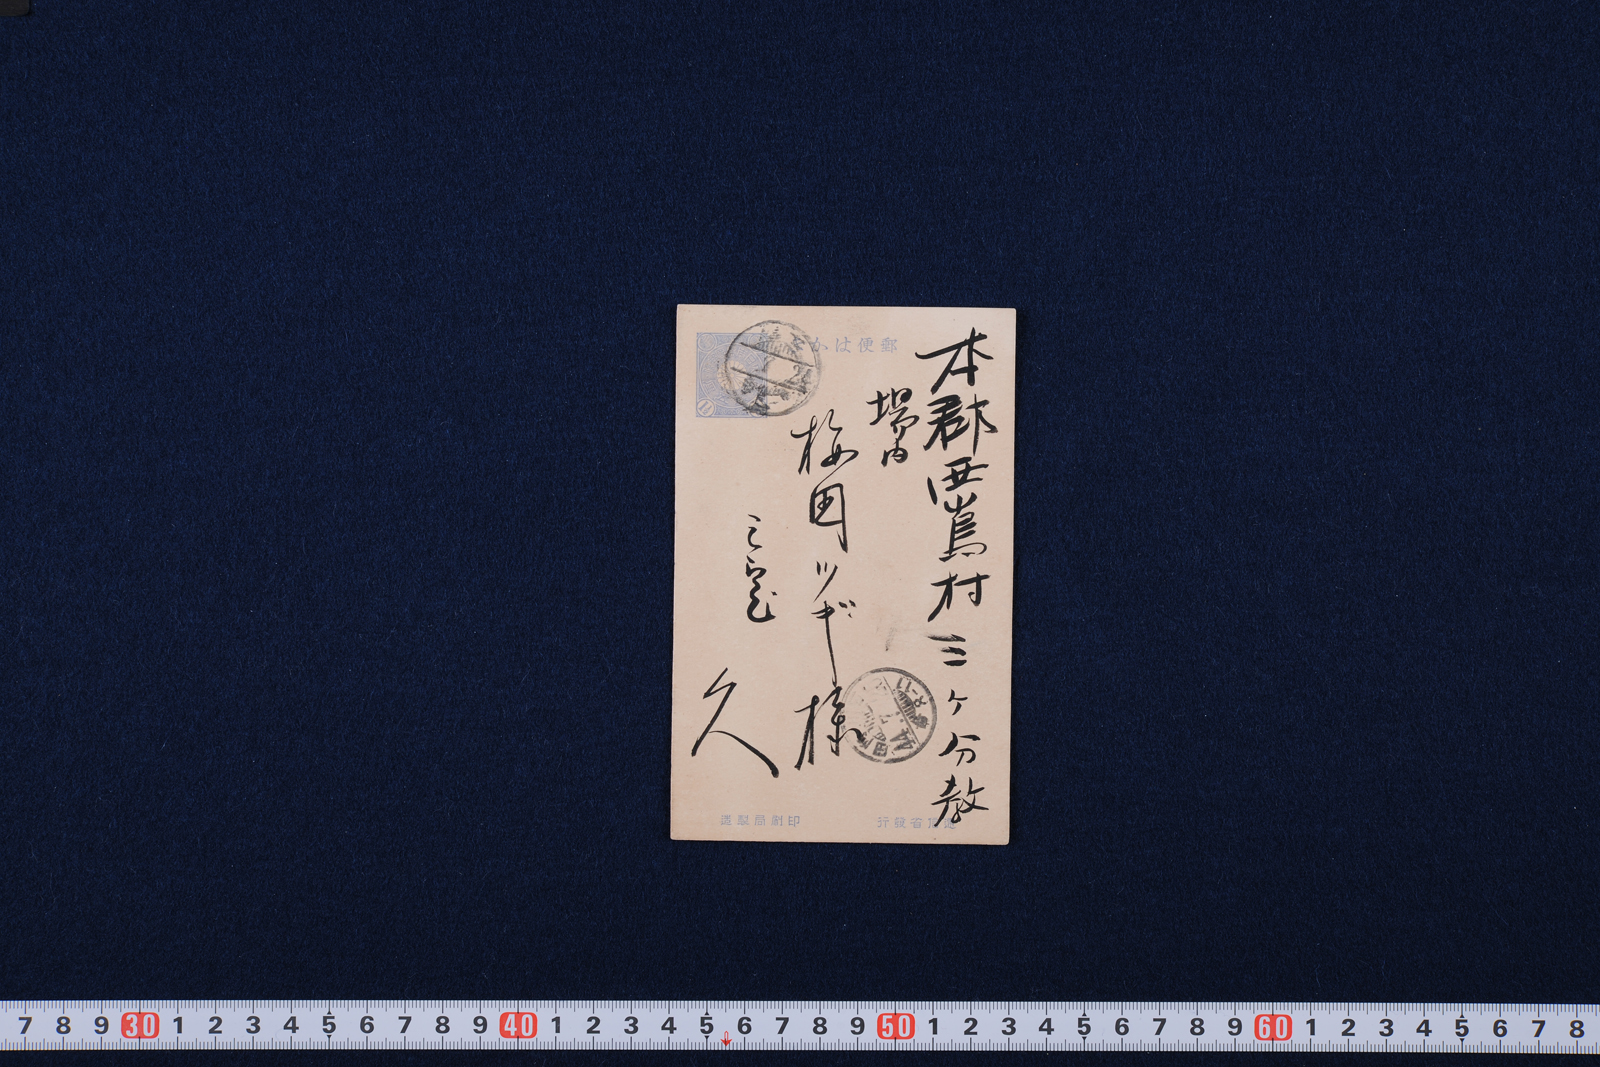 郵便はか
本郡西嶌村三ヶ分教
場内
梅田ツギ様
久
44
8-11
印刷局製造
遞信省發行
7 8 9 30 1 2 3 4 5 6 7 8 9 40 1 2 3 4 5 6 7 8 9 50 1 2 3 4 5 6 7 8 9 60 1 2 3 4 5 6 7 8